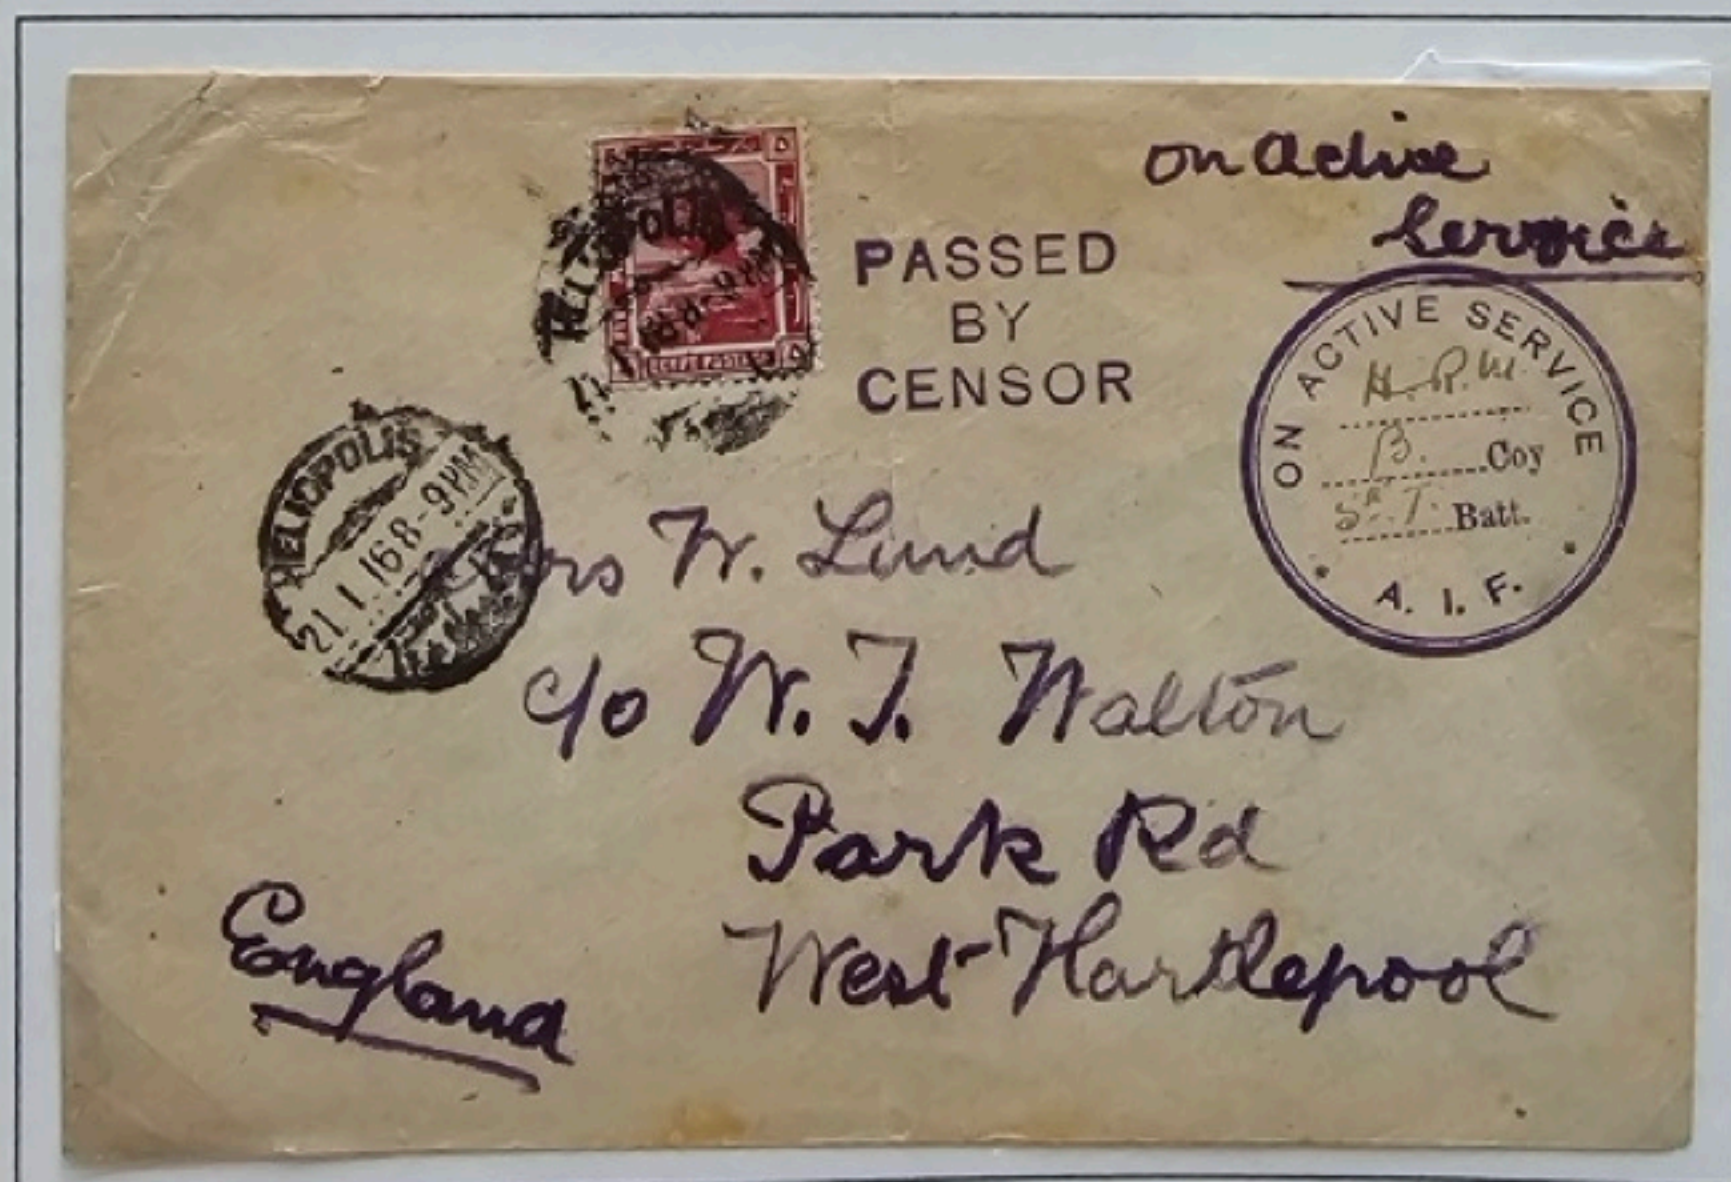 on active
Service
PASSED
BY
CENSOR
ON ACTIVE SERVICE
H.R.M.
B. Coy
Batt.
A. I. F.
EGYPT POSTAGE
HELIOPOLIS
21.1.16 8-9 PM
Mrs W. Lund
c/o W. T. Walton
Park Rd
West Hartlepool
England